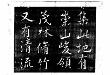 集此地有
崇山峻領
茂林脩竹
又有清流